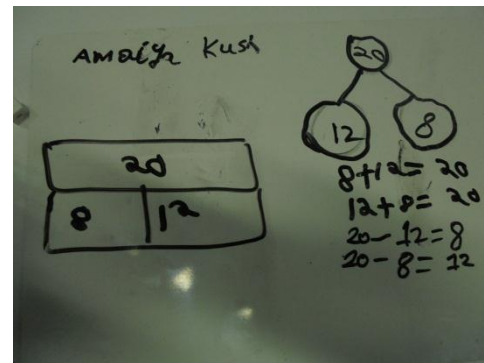 Amaiya Kush
20
8 12
20
12 8
8+12= 20
12+8= 20
20- 12=8
20- 8= 12